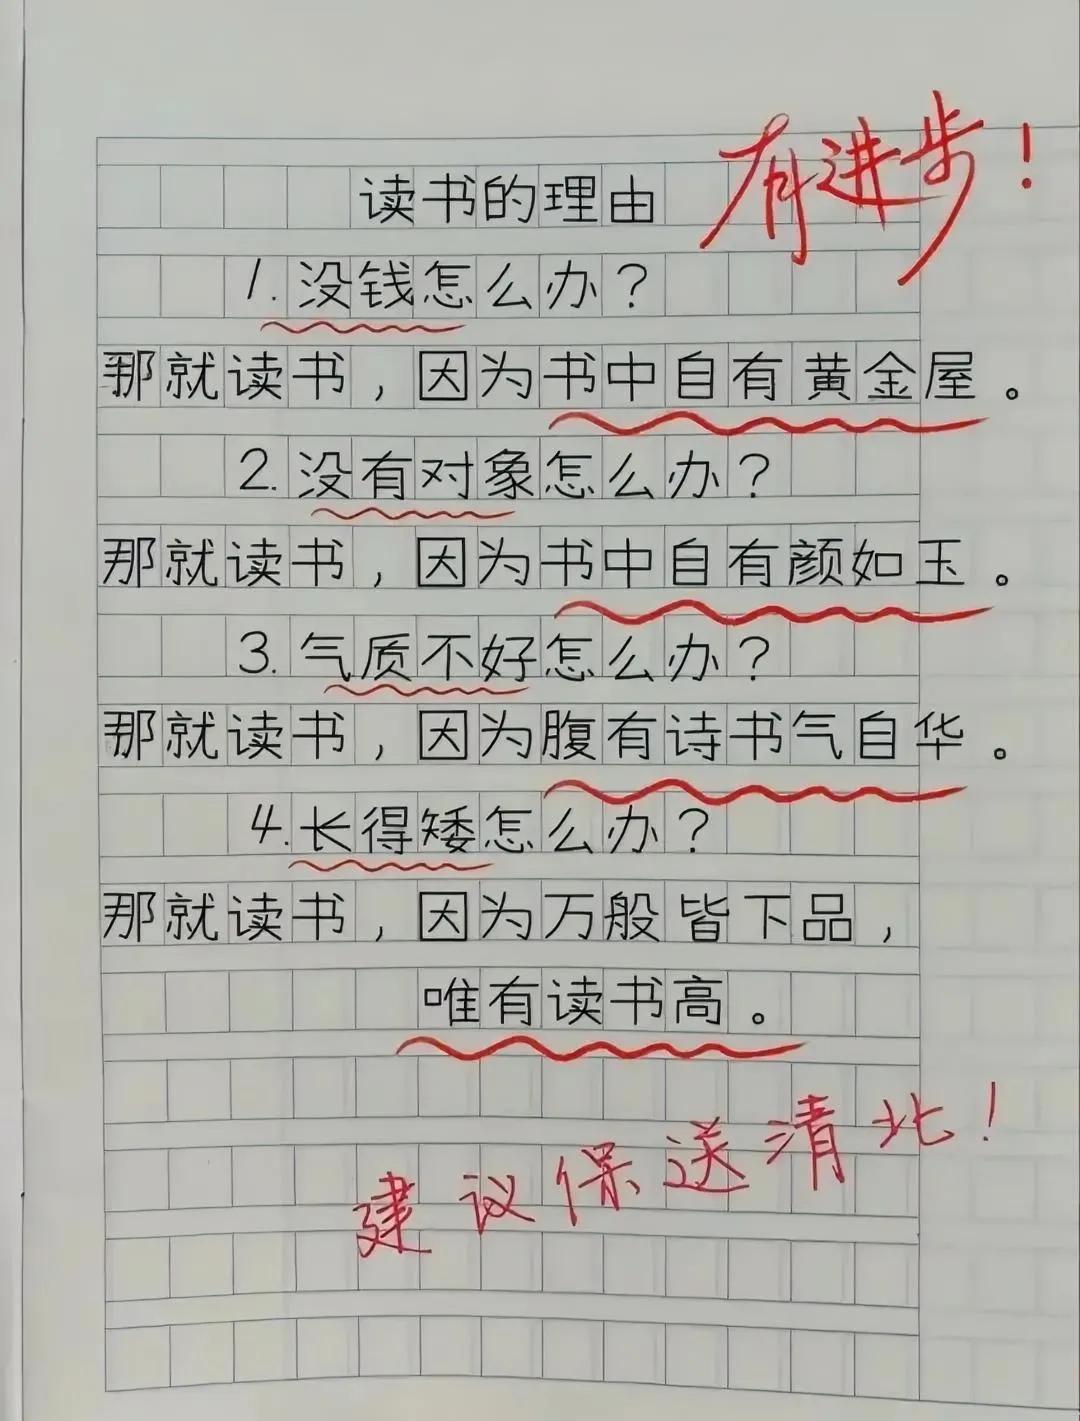 有进步！
读书的理由
1.没钱怎么办？
那就读书，因为书中自有黄金屋。
2.没有对象怎么办？
那就读书，因为书中自有颜如玉。
3.气质不好怎么办？
那就读书，因为腹有诗书气自华。
4.长得矮怎么办？
那就读书，因为万般皆下品，
唯有读书高。
建议保送清北！